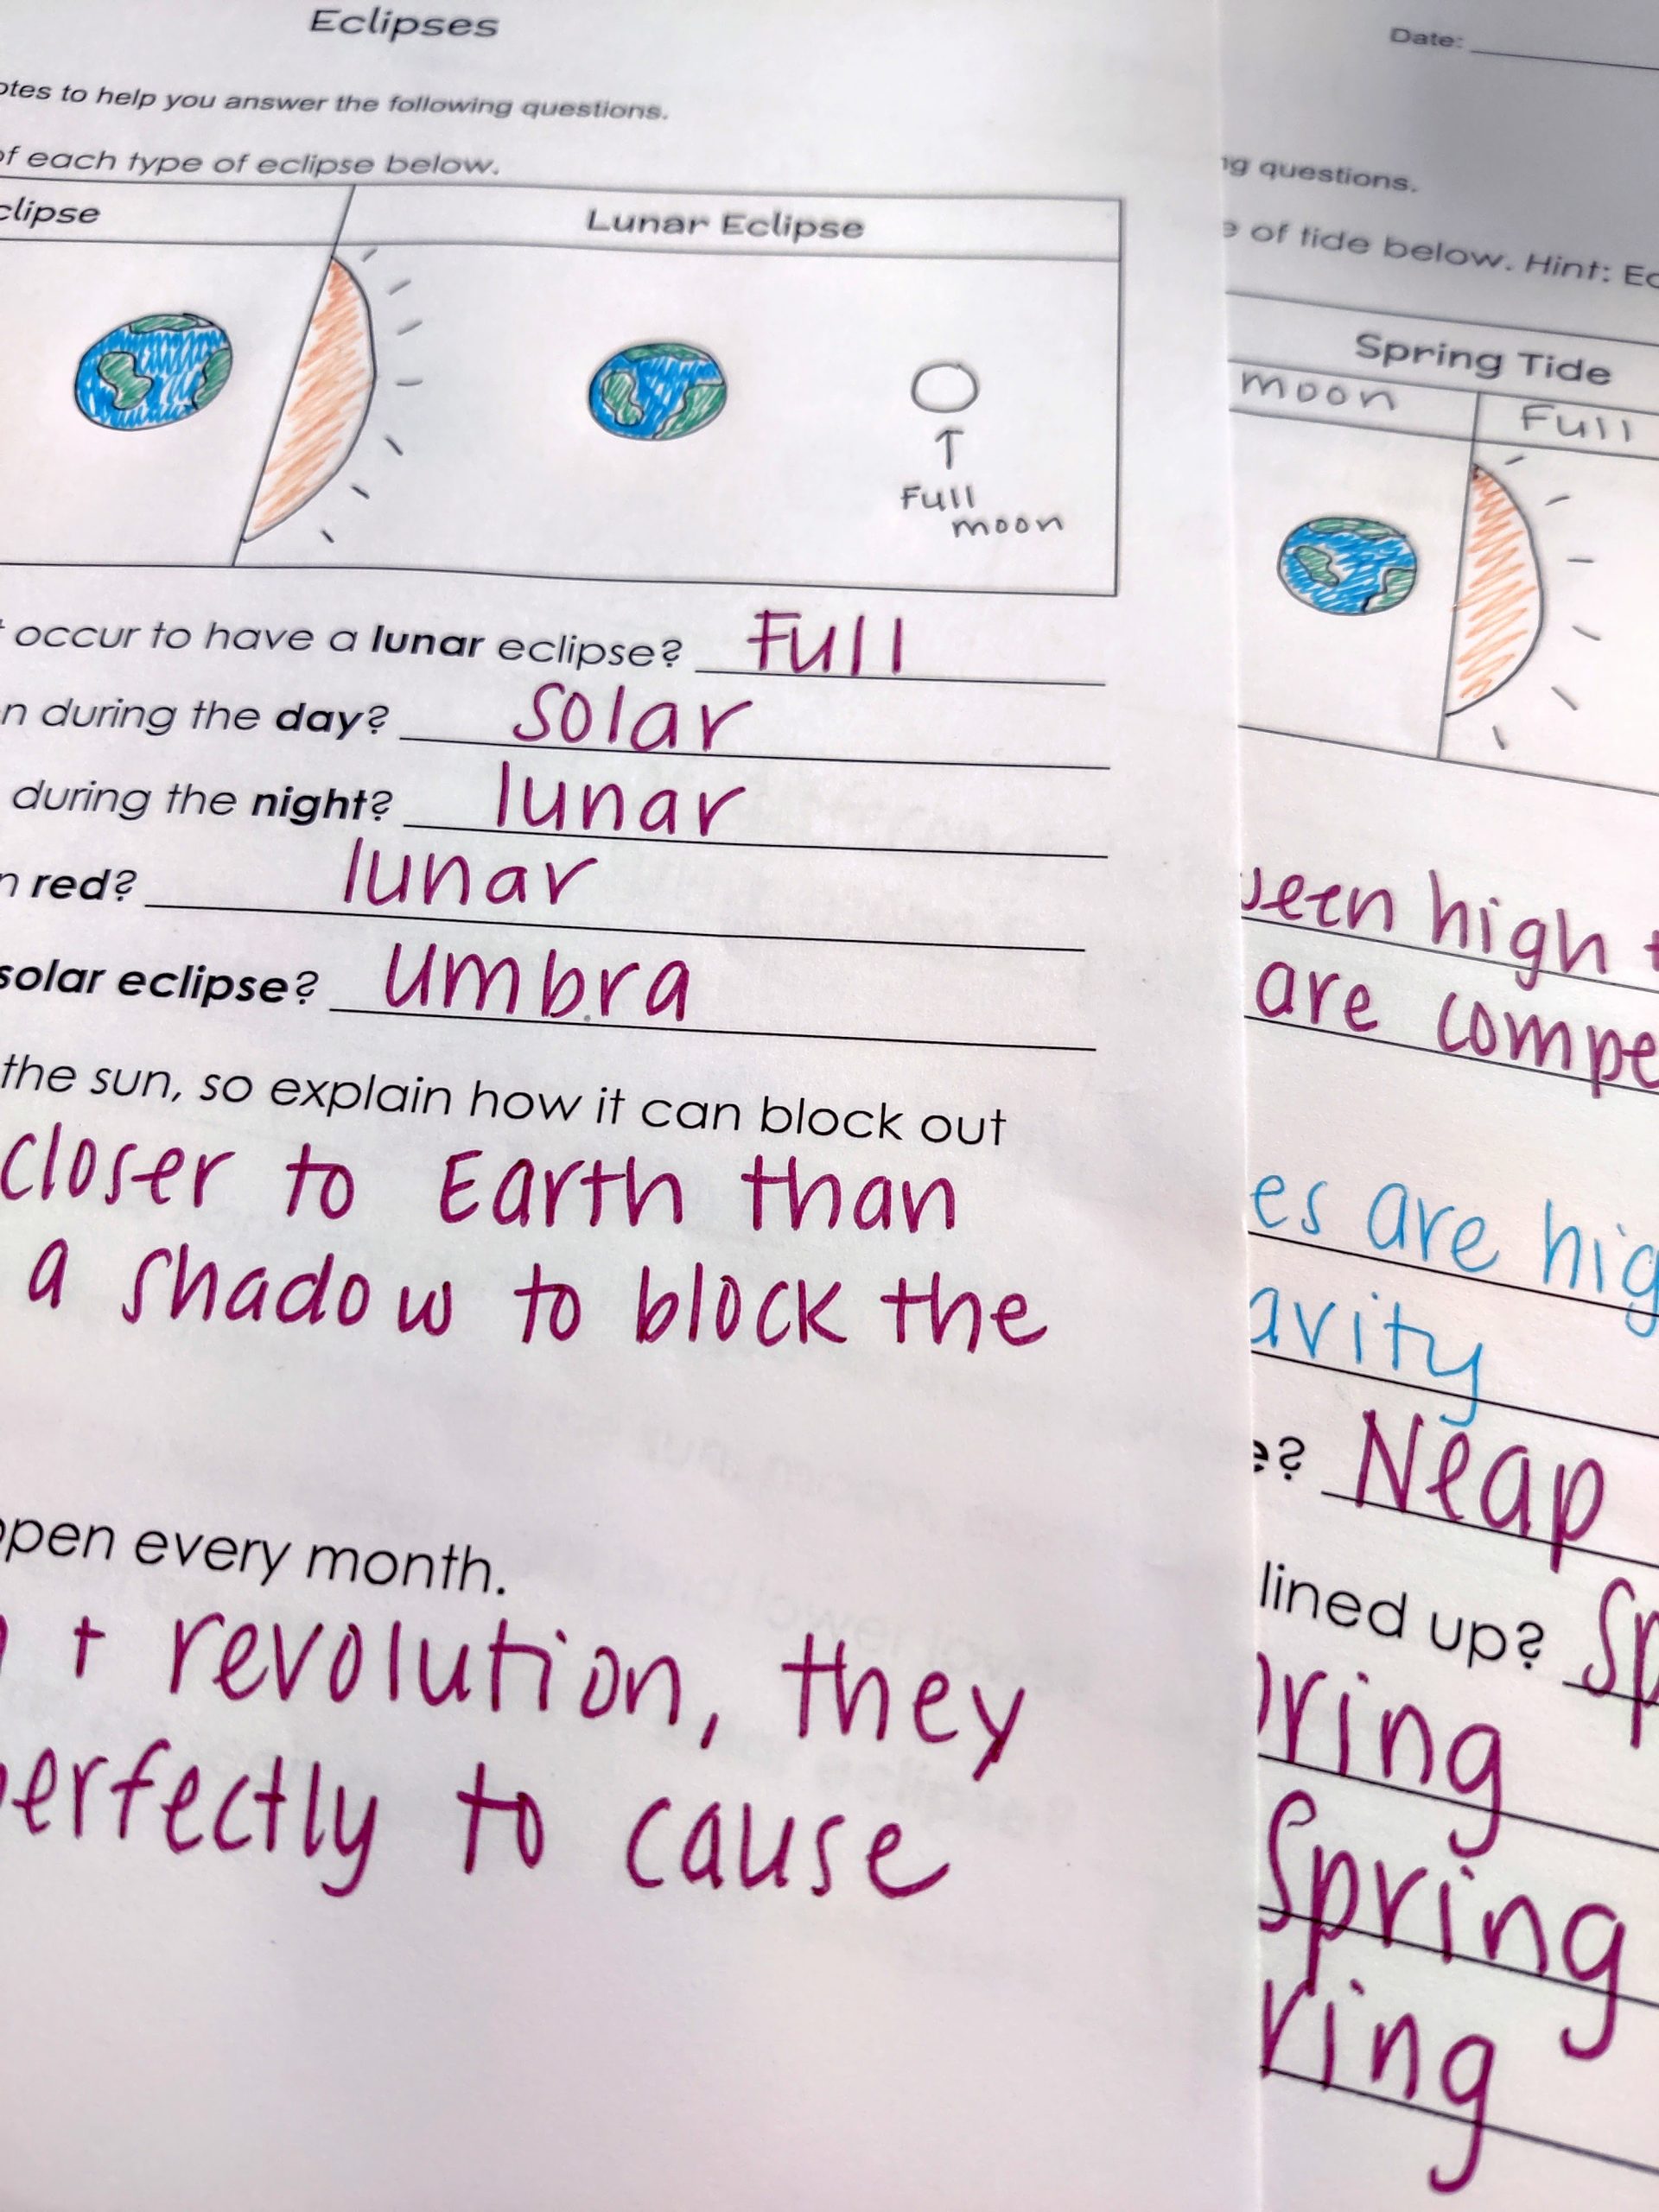 Eclipses
to help you answer the following questions.
of each type of eclipse below.
Lunar Eclipse
Full
moon
occur to have a lunar eclipse? Full
during the day? solar
during the night? lunar
red? lunar
solar eclipse? umbra
the sun, so explain how it can block out
closer to Earth than
a shadow to block the
every month.
+ revolution, they
to cause
Date:
questions.
of tide below. Hint:
Spring Tide
moon Full
high
are
are
Neap
lined up?
Spring